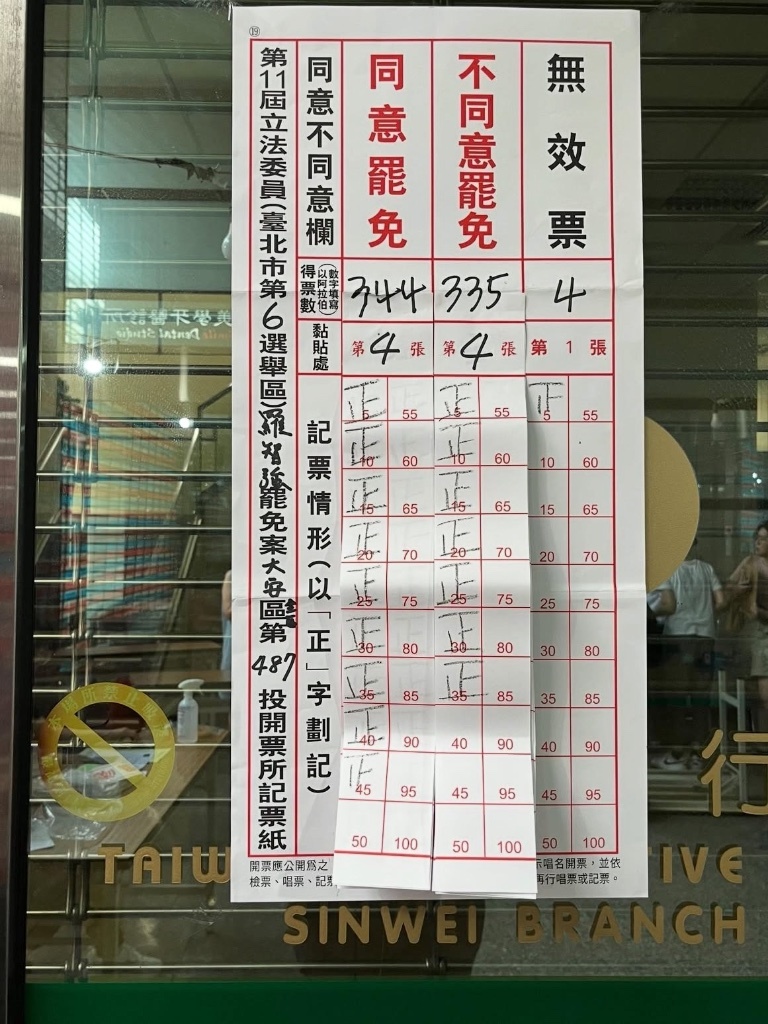 ⑲
第11屆立法委員(臺北市第6選舉區)羅智強罷免案大安區第487投開票所記票紙
同意不同意欄
同意罷免
不同意罷免
無效票
得票數(數字填寫以阿拉伯)
344
335
4
黏貼處
第4張
第4張
第1張
記票情形(以「正」字劃記)
正 5 55
正 10 60
正 15 65
正 20 70
正 25 75
正 30 80
正 35 85
正 40 90
45 95
50 100
正 5 55
正 10 60
正 15 65
正 20 70
正 25 75
正 30 80
正 35 85
40 90
45 95
50 100
5 55
10 60
15 65
20 70
25 75
30 80
35 85
40 90
45 95
50 100
開票應公開為之
檢票、唱票、記票
示唱名開票，並依
再行唱票或記票。
美學牙醫診所
Dental Studio
行
TAIW
TIVE
SINWEI BRANCH